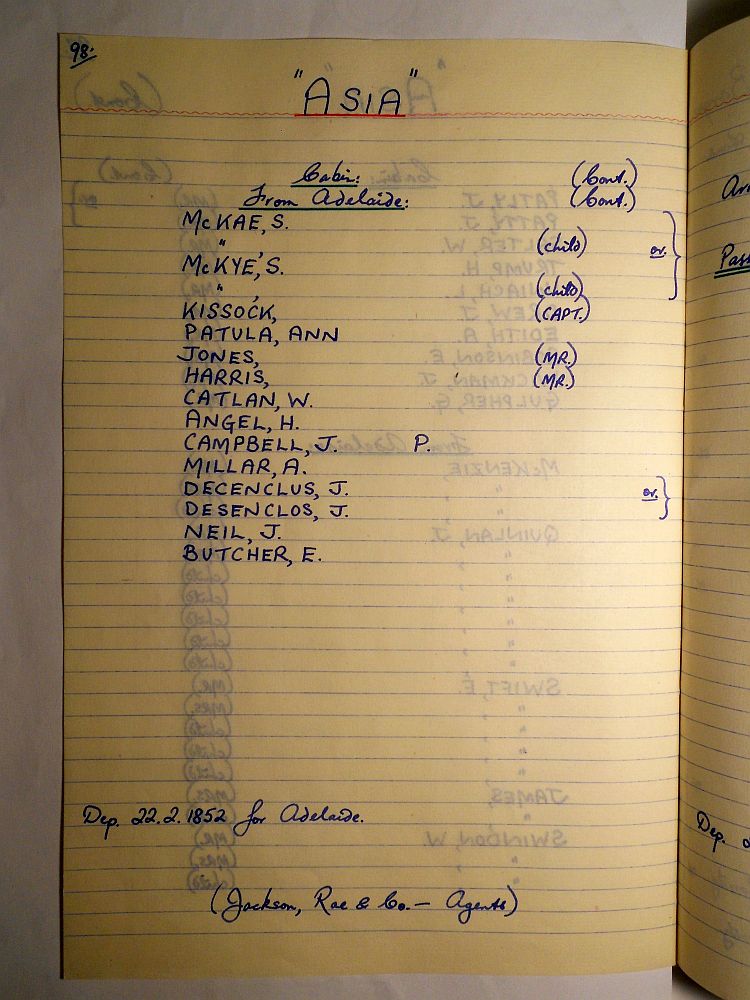 98.
"ASIA"
Cabin: (Cont.)
From Adelaide: (Cont.)
McKAE, S.
" , (child) or.
McKYE, S.
" , (child)
KISSOCK, (CAPT.)
PATULA, ANN
JONES, (MR.)
HARRIS, (MR.)
CATLAN, W.
ANGEL, H.
CAMPBELL, J. P.
MILLAR, A.
DECENCLUS, J. or.
DESENCLOS, J.
NEIL, J.
BUTCHER, E.
Dep. 22.2.1852 for Adelaide.
(Jackson, Rae & Co. — Agents)
Pass
Dep.